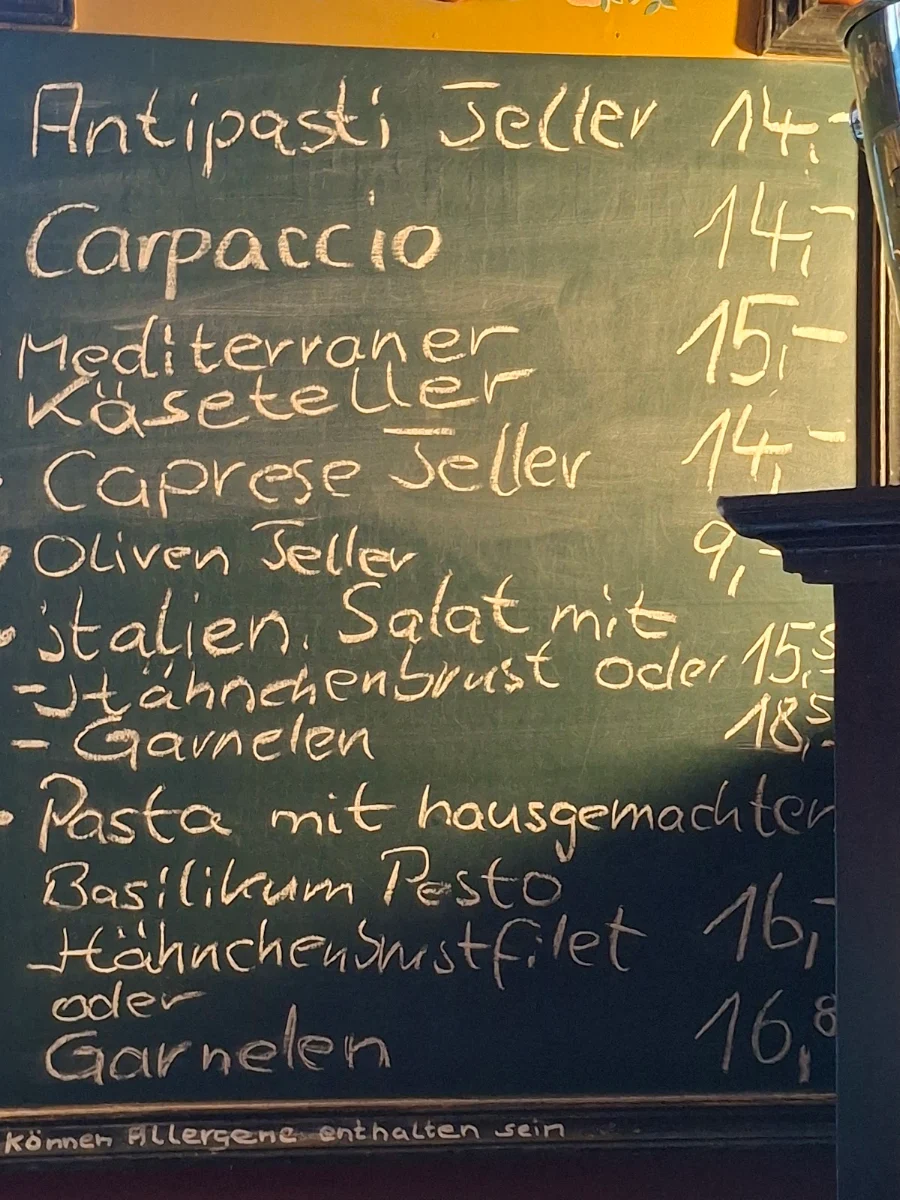 Antipasti Teller 14,-
Carpaccio 14,-
Mediterraner 15,-
Käseteller
Caprese Teller 14,-
Oliven Teller 9,-
italien. Salat mit
- Hähnchenbrust oder 15,5
- Garnelen 18,5
Pasta mit hausgemachten
Basilikum Pesto
Hähnchenbrustfilet 16,-
oder
Garnelen 16,8
können Allergene enthalten sein